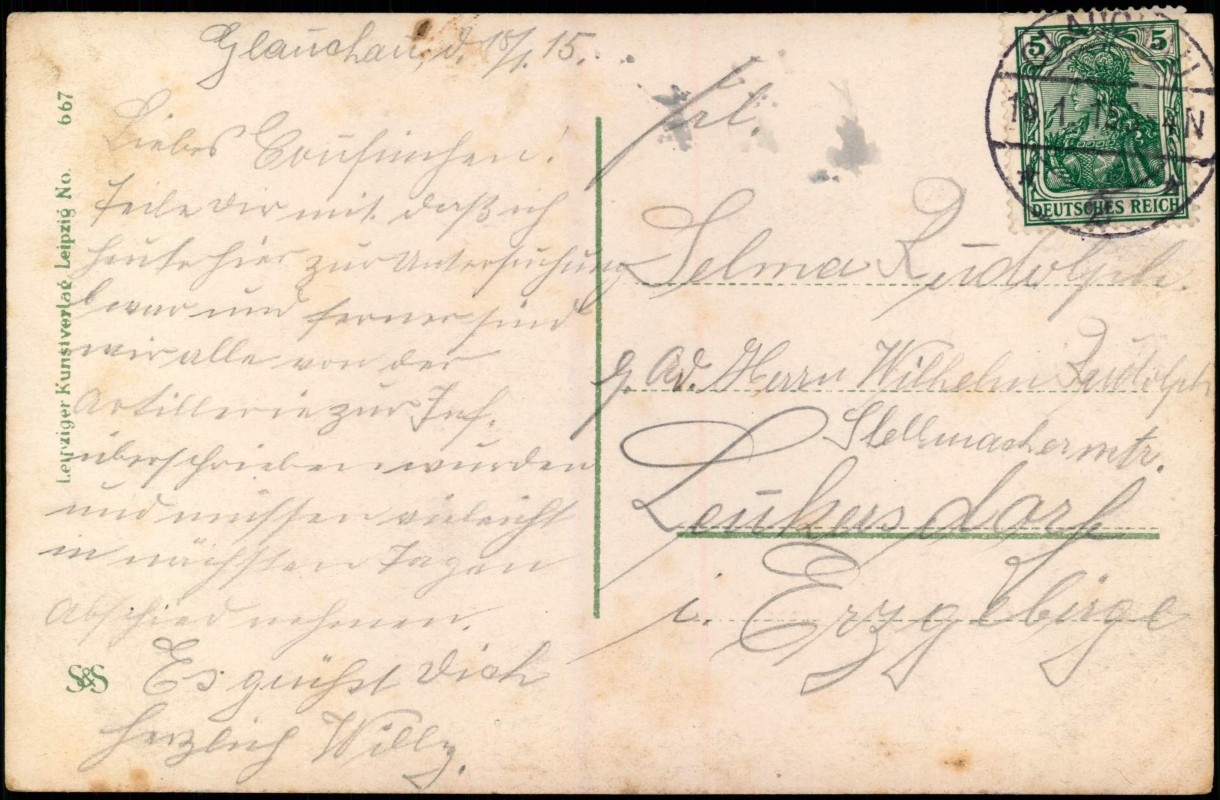 Glauchau, d. 18/1. 15.
Liebes Cousinchen!
Teile dir mit daß ich
heute hier zur Untersuchung
war und ferner sind
wir alle von der
Artillerie zur Inf.
überschrieben wurden
und müssen vieleicht
in nächsten Tagen
Abschied nehmen.
Es grüßt Dich
herzlich Willy.
Frl.
Selma Rudolph.
Ad. Herrn Wilhelm Rudolph
Stellmachermstr.
Leukersdorf
i. Erzgebirge
Leipziger Kunstverlag Leipzig No. 667
S&S
5 5
DEUTSCHES REICH
GLAUCHAU
18.1.15.
N
* 2 *